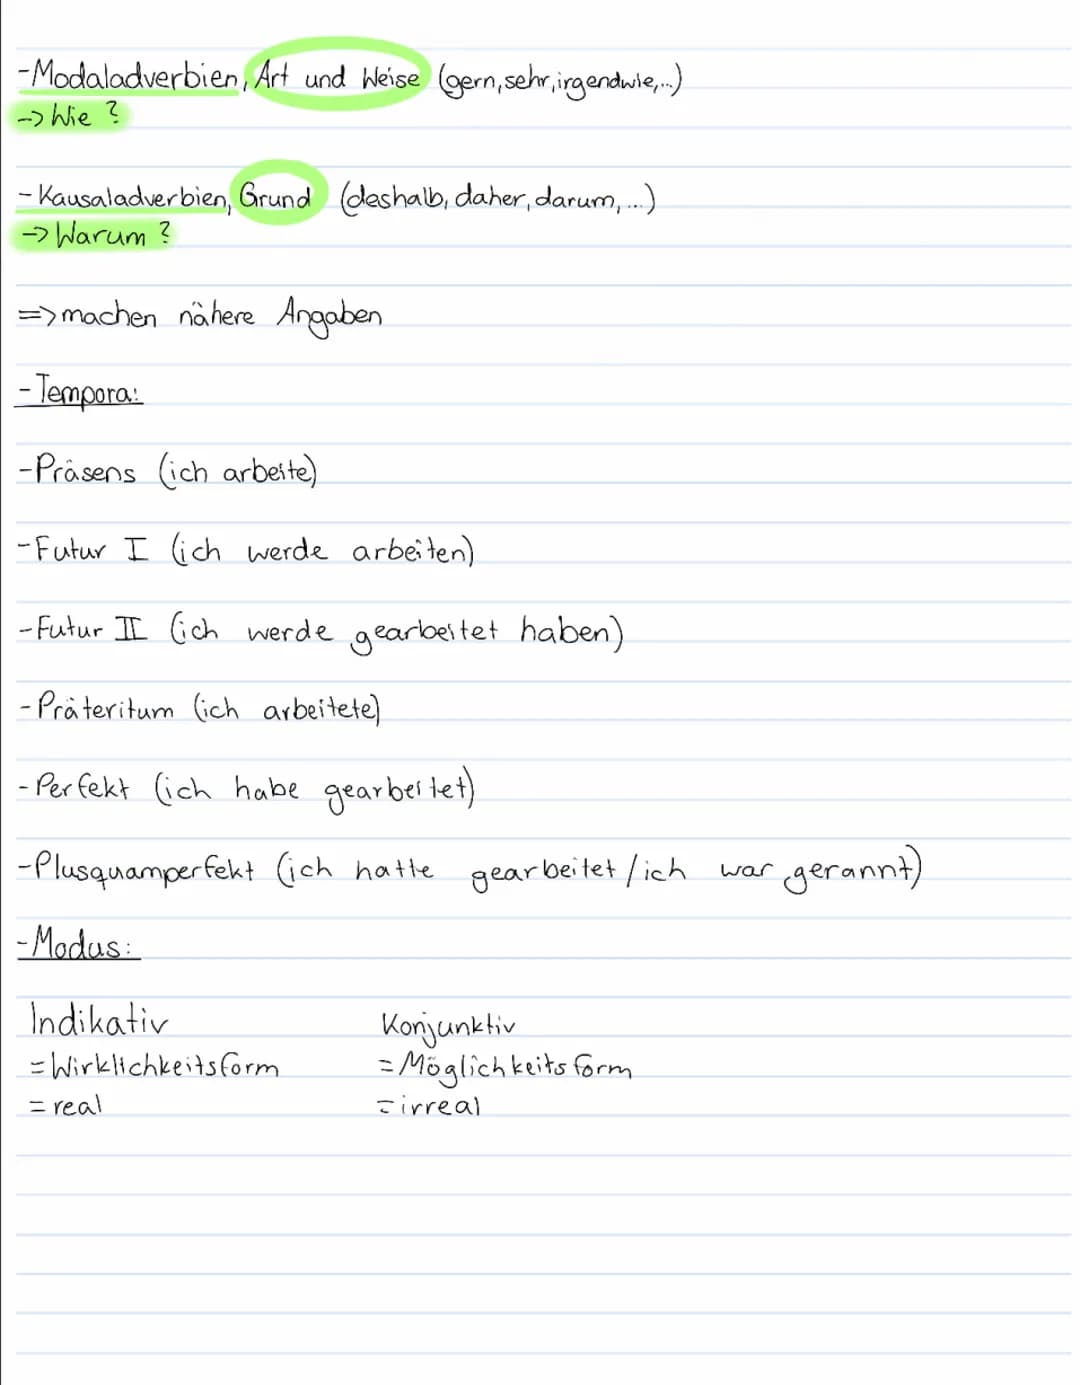 -Modaladverbien, Art und Weise (gern, sehr, irgendwie,...)
-> Wie ?
-Kausaladverbien, Grund (deshalb, daher, darum, ...)
-> Warum ?
=> machen nähere Angaben
-Tempora:
-Präsens (ich arbeite)
-Futur I (ich werde arbeiten)
-Futur II (ich werde gearbeitet haben)
-Präteritum (ich arbeitete)
-Perfekt (ich habe gearbeitet)
-Plusquamperfekt (ich hatte gearbeitet / ich war gerannt)
-Modus:
Indikativ Konjunktiv
=Wirklichkeitsform =Möglichkeitsform
=real =irreal